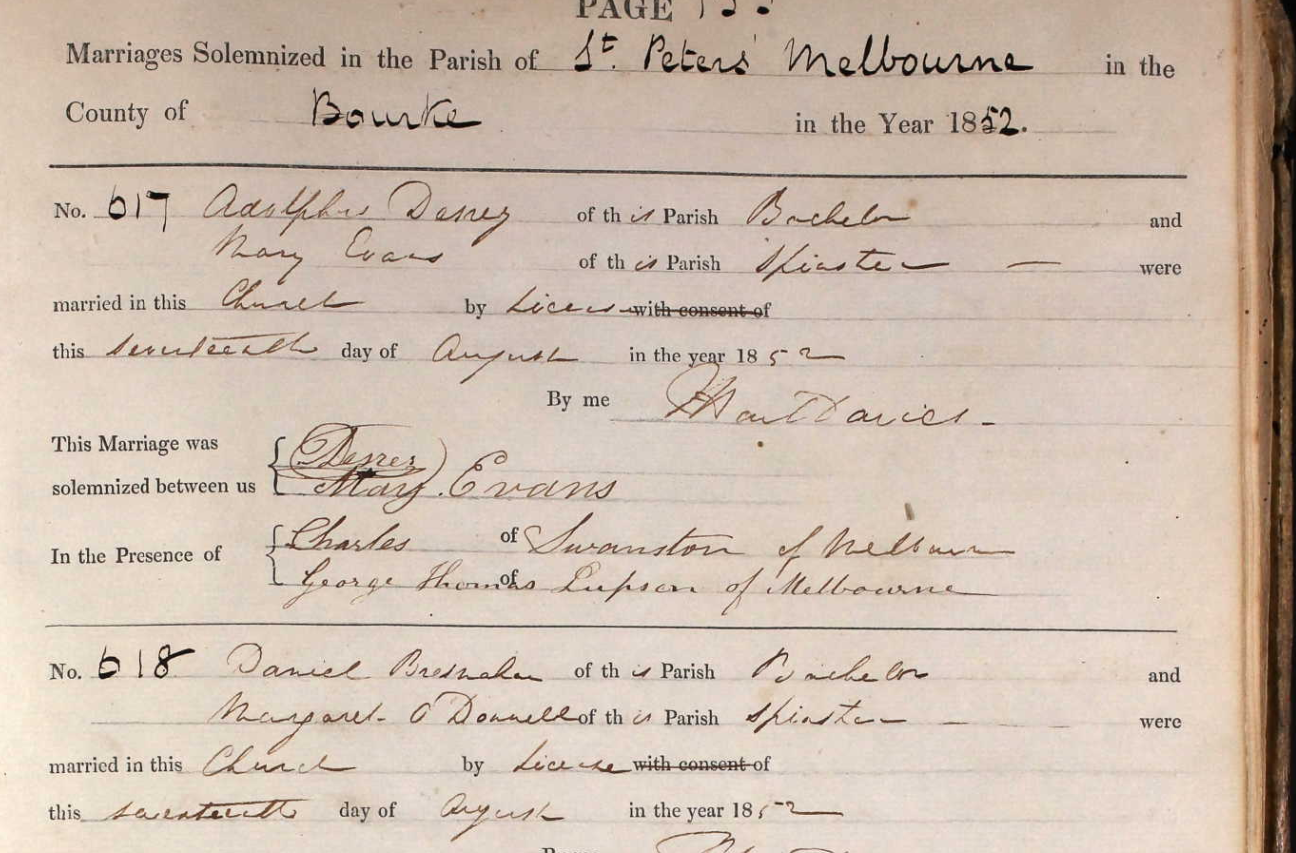 PAGE
Marriages Solemnized in the Parish of St. Peters' Melbourne in the
County of Bourke in the Year 1852.
No. 617 Adolphus of this Parish Bachelor and
Mary Evans of this Parish Spinster — were
married in this Church by License with consent of
this seventeenth day of August in the year 1852
By me Davies
This Marriage was
solemnized between us
Mary Evans
In the Presence of
Charles of Swanston of Melbourne
George Thomas of Lupson of Melbourne
No. 618 Daniel Bresnahan of this Parish Bachelor and
Margaret O'Donnell of this Parish Spinster — were
married in this Church by License with consent of
this seventeenth day of August in the year 1852